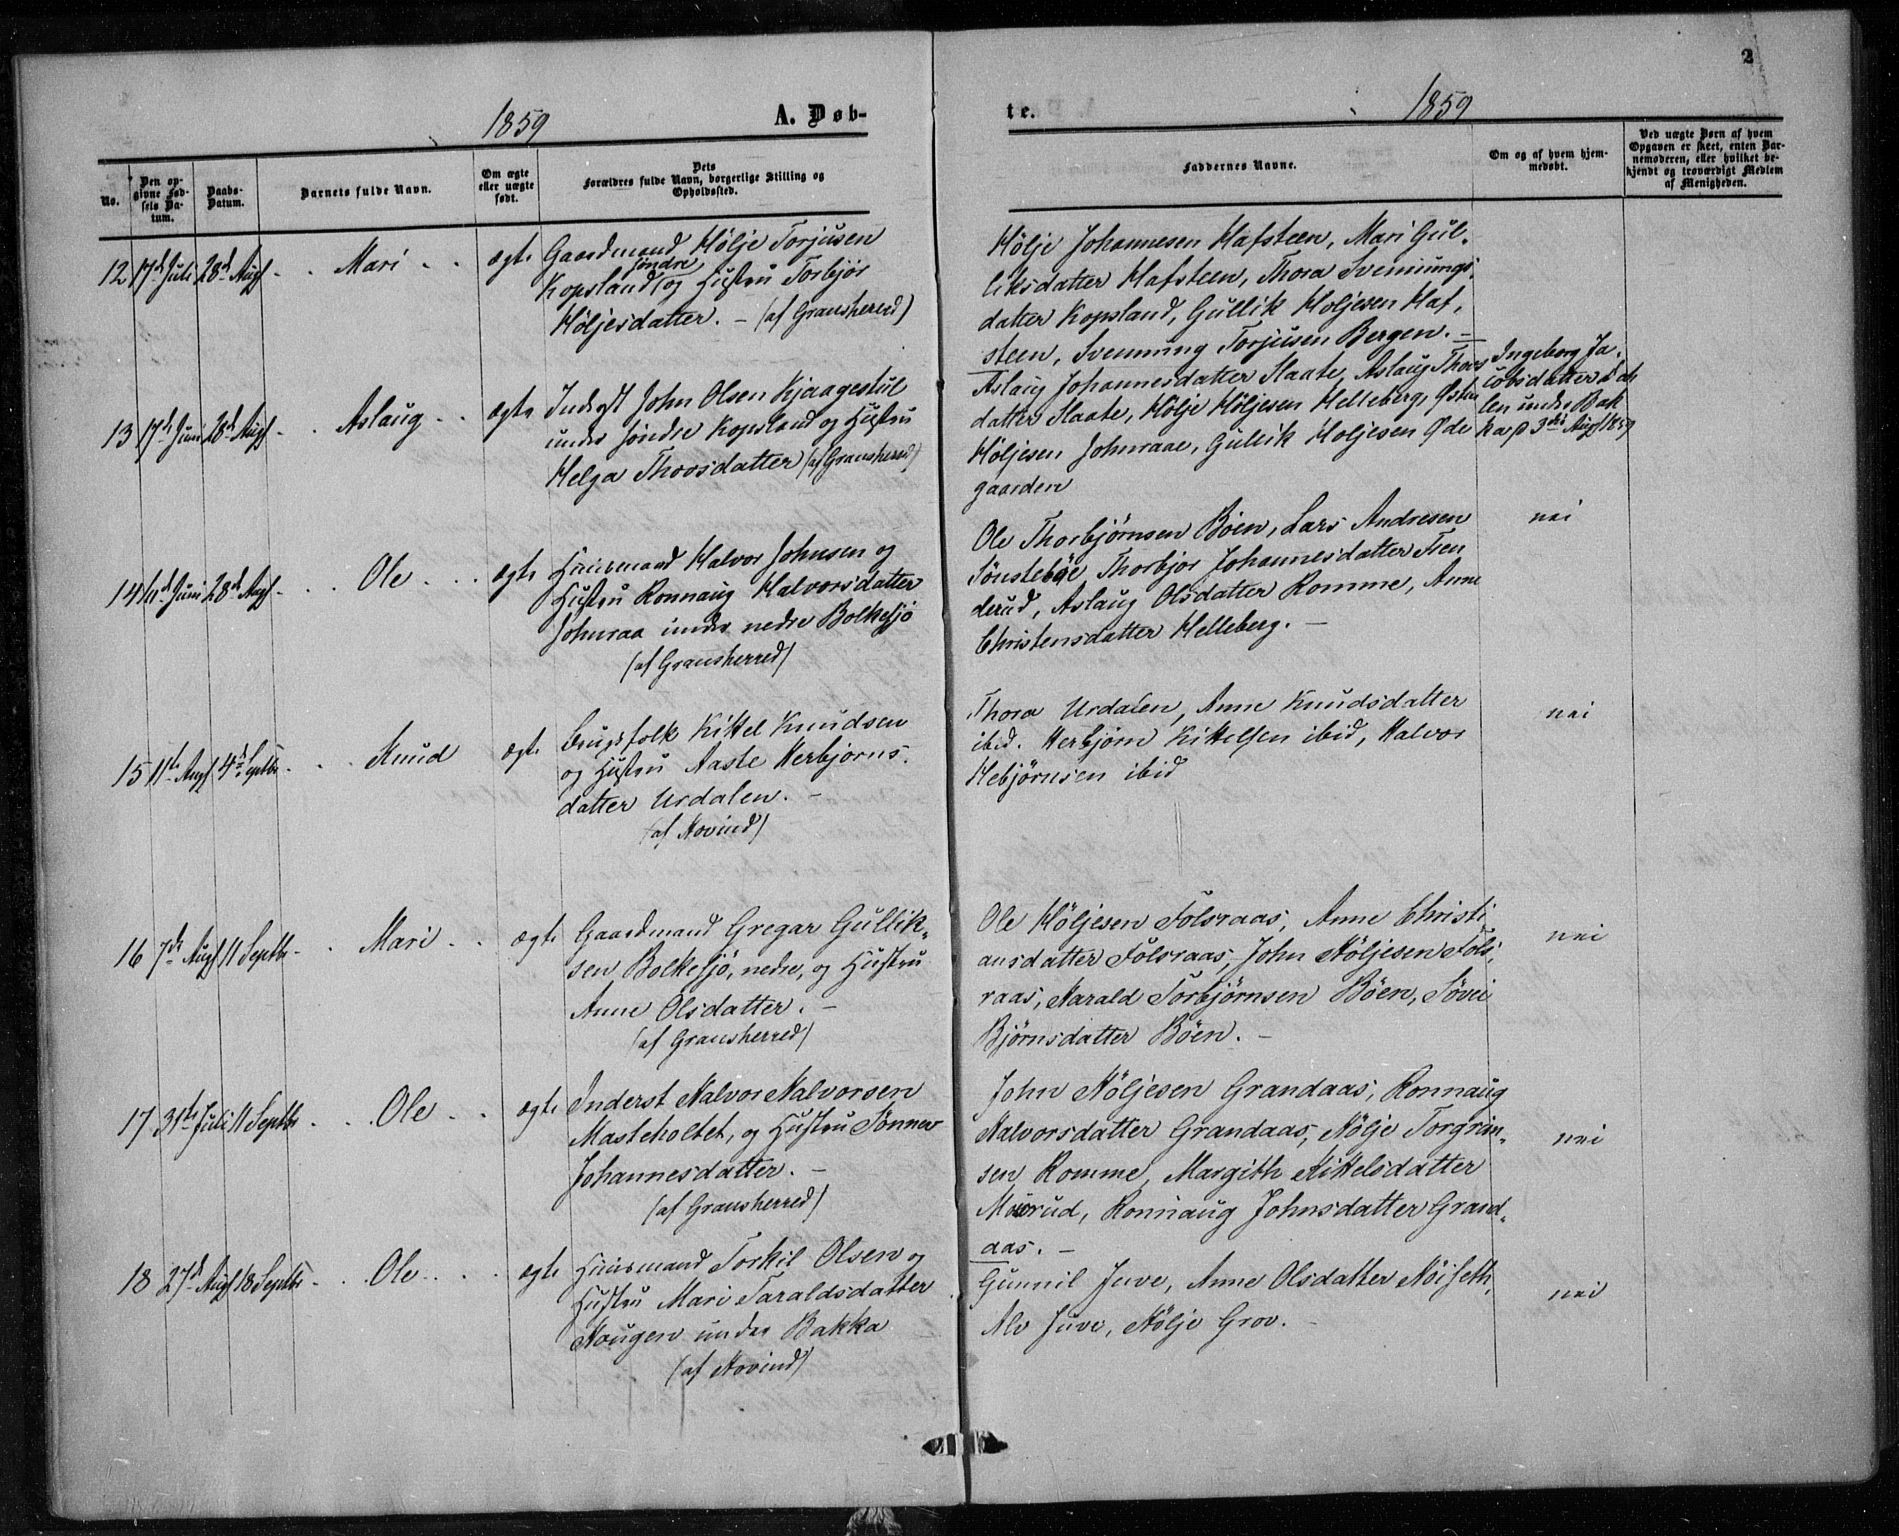 2
1859
A. Døb-
te.
1859
No.
Den op-
givne Fød-
sels Da-
tum.
Daabs-
Datum.
Barnets fulde Navn.
Om ægte
eller uægte
født.
Dets
Forældres fulde Navn, borgerlige Stilling og
Opholdssted.
Faddernes Navne.
Om og af hvem hjem-
medøbt.
Ved uægte Børn af hvem
Opgaven er skeet, enten Bar-
nemoderen, eller hvilket be-
kjendt og troværdigt Medlem
af Menigheden.
12 17de Juli 28de Augf - . . Mari . . ægte
Gaardmand Hølje Torjusen
søndre
Kopsland og Hustru Torbjør
Høljesdatter. - (af Gransherred)
Hølje Johannesen Hafsteen, Mari Gul-
liksdatter Hafsteen, Thora Svennungs-
datter Kopsland, Gullik Høljesen Haf-
steen, Svennung Torjusen Bergen. -
13 17de Juni 28de Augf - . . Aslaug . . ægte
Inderst John Olsen Kjaagestul
under søndre Kopsland og Hustru
Helga Thovsdatter (af Gransherred)
Aslaug Johannesdatter Slaate, Aslaug Thovs
datter Slaate, Hølje Høljesen Helleberg, Østen
Høljesen Johnraae, Gullik Høljesen Øde
gaarden
Ingeborg Ja-
cobsdatter Dah
len under Bak
ka p 3die Augf 1859
14 11te Juni 28de Augf - . . Ole . . . ægte
Huusmand Halvor Johnsen og
Hustru Ronnaug Halvorsdatter
Johnraa under nedre Bolkesjø
(af Gransherred)
Ole Thorbjørnsen Bøen, Lars Andresen
Sønstebøe, Thorbjør Johannesdatter Tren
derud, Aslaug Olsdatter Romme, Anne
Christensdatter Helleberg. -
nei
15 11te Augf 4de Septbr - . . Knud ægte
Brugsfolk Kittel Knudsen
og Hustru Aaste Herbjørns-
datter Urdalen. -
(af Hovind)
Thora Urdalen, Anne Knudsdatter
ibid. Herbjørn Kittelsen ibid, Halvor
Hebjørnsen ibid
nei
16 7de Augf 11 Septbr - . Mari . . ægte
Gaardmand Gregar Gullik-
sen Bolkesjø, nedre, og Hustru
Anne Olsdatter. -
(af Gransherred)
Ole Høljesen Folsraas, Anne Christi
ansdatter Folsraas, John Høljesen Fols-
raas, Harald Torbjørnsen Bøen, Søvei
Bjørnsdatter Bøen. -
nei
17 31te Juli 11 Septbr . . . Ole . . ægte
Inderst Halvor Halvorsen
Masteholtet, og Hustru Sønnev
Johannesdatter. -
(af Gransherred)
John Høljesen Grandaas, Ronnaug
Halvorsdatter Grandaas, Hølje Torgrim-
sen Romme, Margith Kittelsdatter
Moerud, Ronnaug Johnsdatter Grand-
aas. -
nei
18 27de Augf 18 Septbr - . . Ole . . . . ægte
Huusmand Torkil Olsen og
Hustru Mari Taraldsdatter
Haugen under Bakka
(af Hovind)
Gunnil Juve, Anne Olsdatter Høiseth,
Alv Juve, Hølje Grov. -
nei